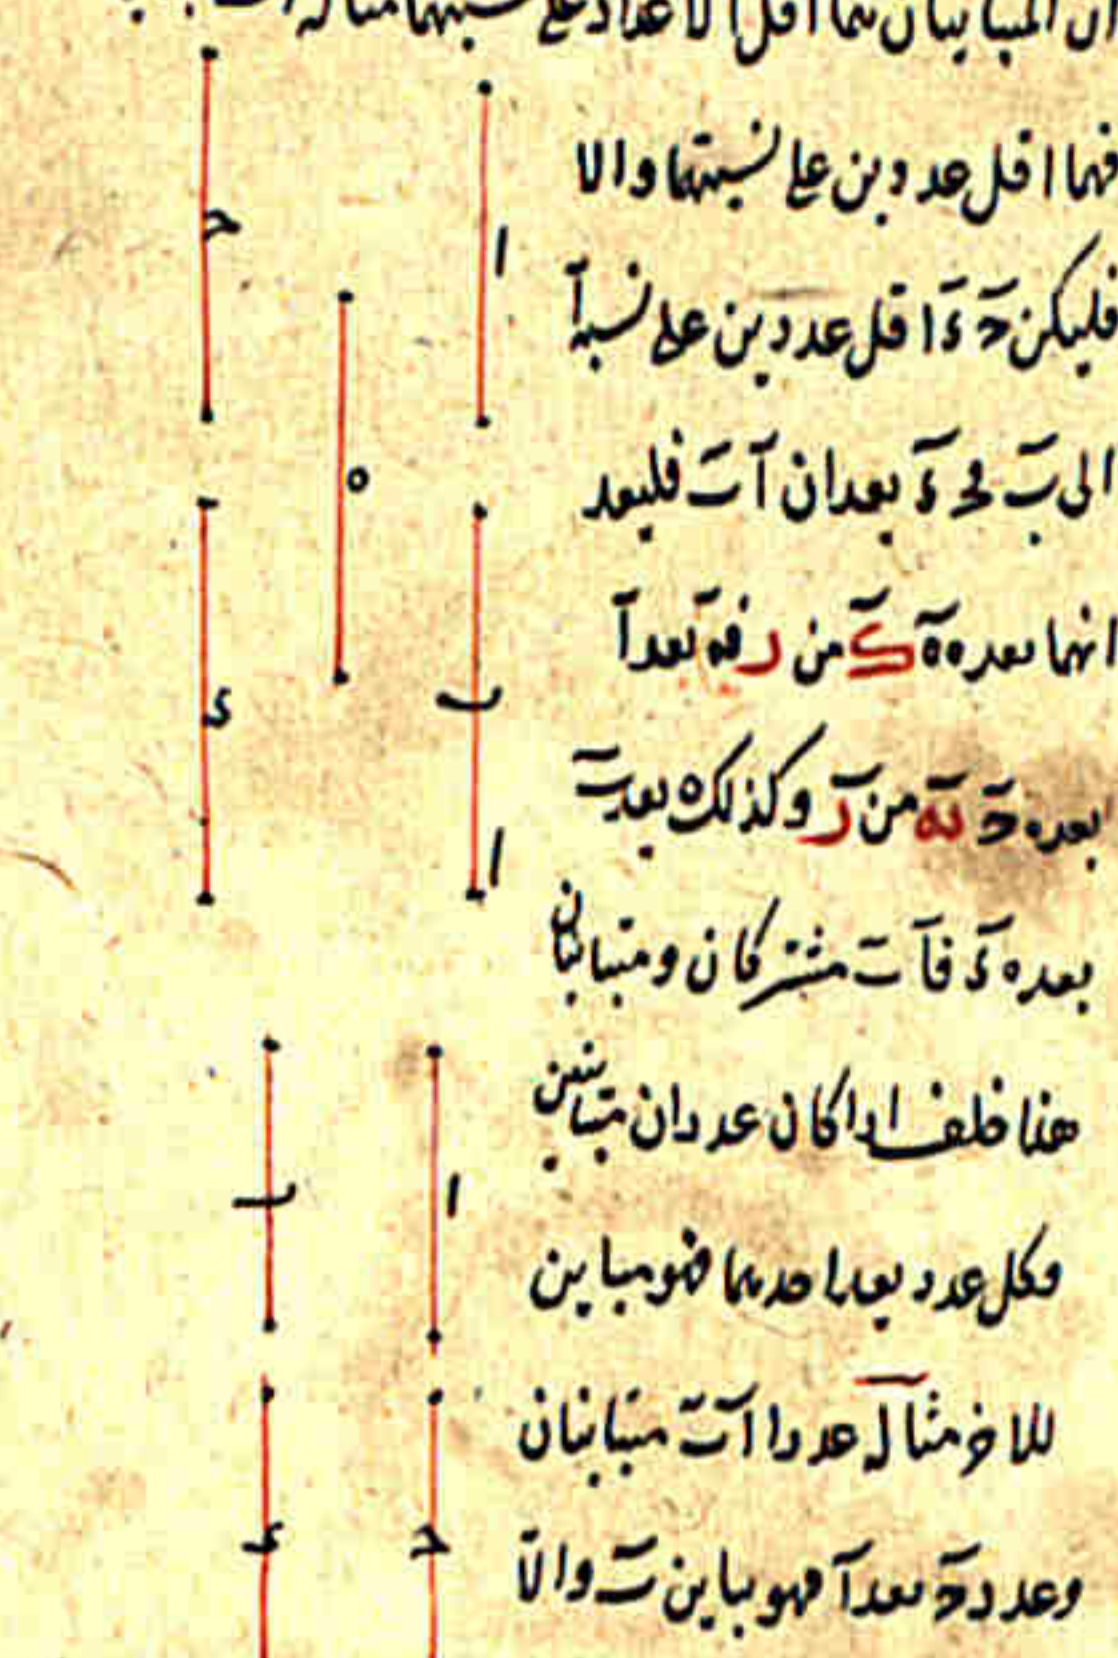 ان المتباينان هما اقل الاعداد على نسبتهما مثاله
فهما اقل عددين على نسبتهما والا
فليكن حَ دَ اقل عددين على نسبة آ
الى بَ فح دَ يعدان آ بَ فليعد
انهما بعده هَ كَ من ر فه يعد آ
بعده حَ يه من ر وكذلك يعد بَ
بعده دَ فآ بَ مشتركان ومتباينان
هذا خلف اذا كان عددان متباينين
وكل عدد يعد احدهما فهو مباين
للاخر مثاله عددا آ بَ متباينان
وعدد حَ يعد آ فهو يباين بَ والا
ا
ح
ه
ب
د
ا
ا
ب
ح
د